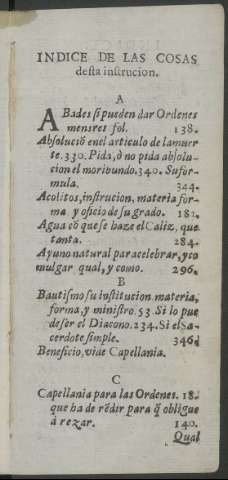 INDICE DE LAS COSAS
desta instrucion.
A
ABades si pueden dar Ordenes
menores fol. 138.
Absolució enel articulo de lamuer
te. 330. Pida, ò no pida absolu-
cion el moribundo. 340. Su for-
mula. 344.
Acolitos, instrucion, materia for-
ma y oficio de su grado. 182.
Agua cõ que se haze el Caliz, que
tanta. 284.
Ayuno natural para celebrar, y co
mulgar qual, y como. 296.
B
Bautismo su institucion materia,
forma, y ministro. 53 Si lo pue
de ser el Diacono. 234. Si el Sa-
cerdote simple. 346.
Beneficio, vide Capellania.
C
Capellania para las Ordenes. 18.
que ha de rẽdir para q̃ obligue
à rezar. 140.
Qual